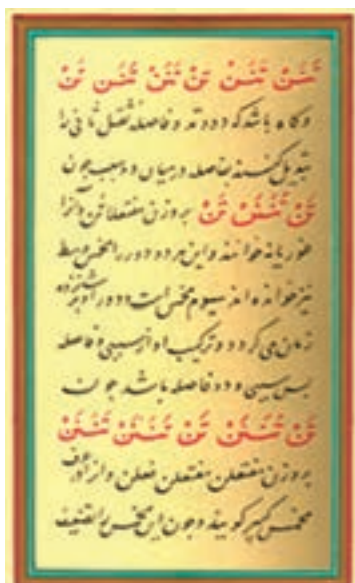 تَنَنْ تَنَنْ تَنْ تَنَنْ تَنَنْ تَنْ
و کاه باشد که دو وتد و فاصله ثقیل ثانی را
تبدیل کنند بفاصله در میان دو سبب چون
تَنْ تَنَنَنْ تَنْ بر وزن مفتعلاتن و آنرا
خوانند و این هر دو دور را مخمس وسط
نیز خوانده اند سیوم مخمس است و دور او بر شانزده
زمان می کردد و ترکیب او از سببی و فاصله
بس سببی و دو فاصله باشد چون
تَنْ تَنَنَنْ تَنْ تَنَنَنْ تَنَنَنْ
بر وزن مفتعلن مفتعلن فعلن و از
مخمس کبیر کویند و چون این مخمس